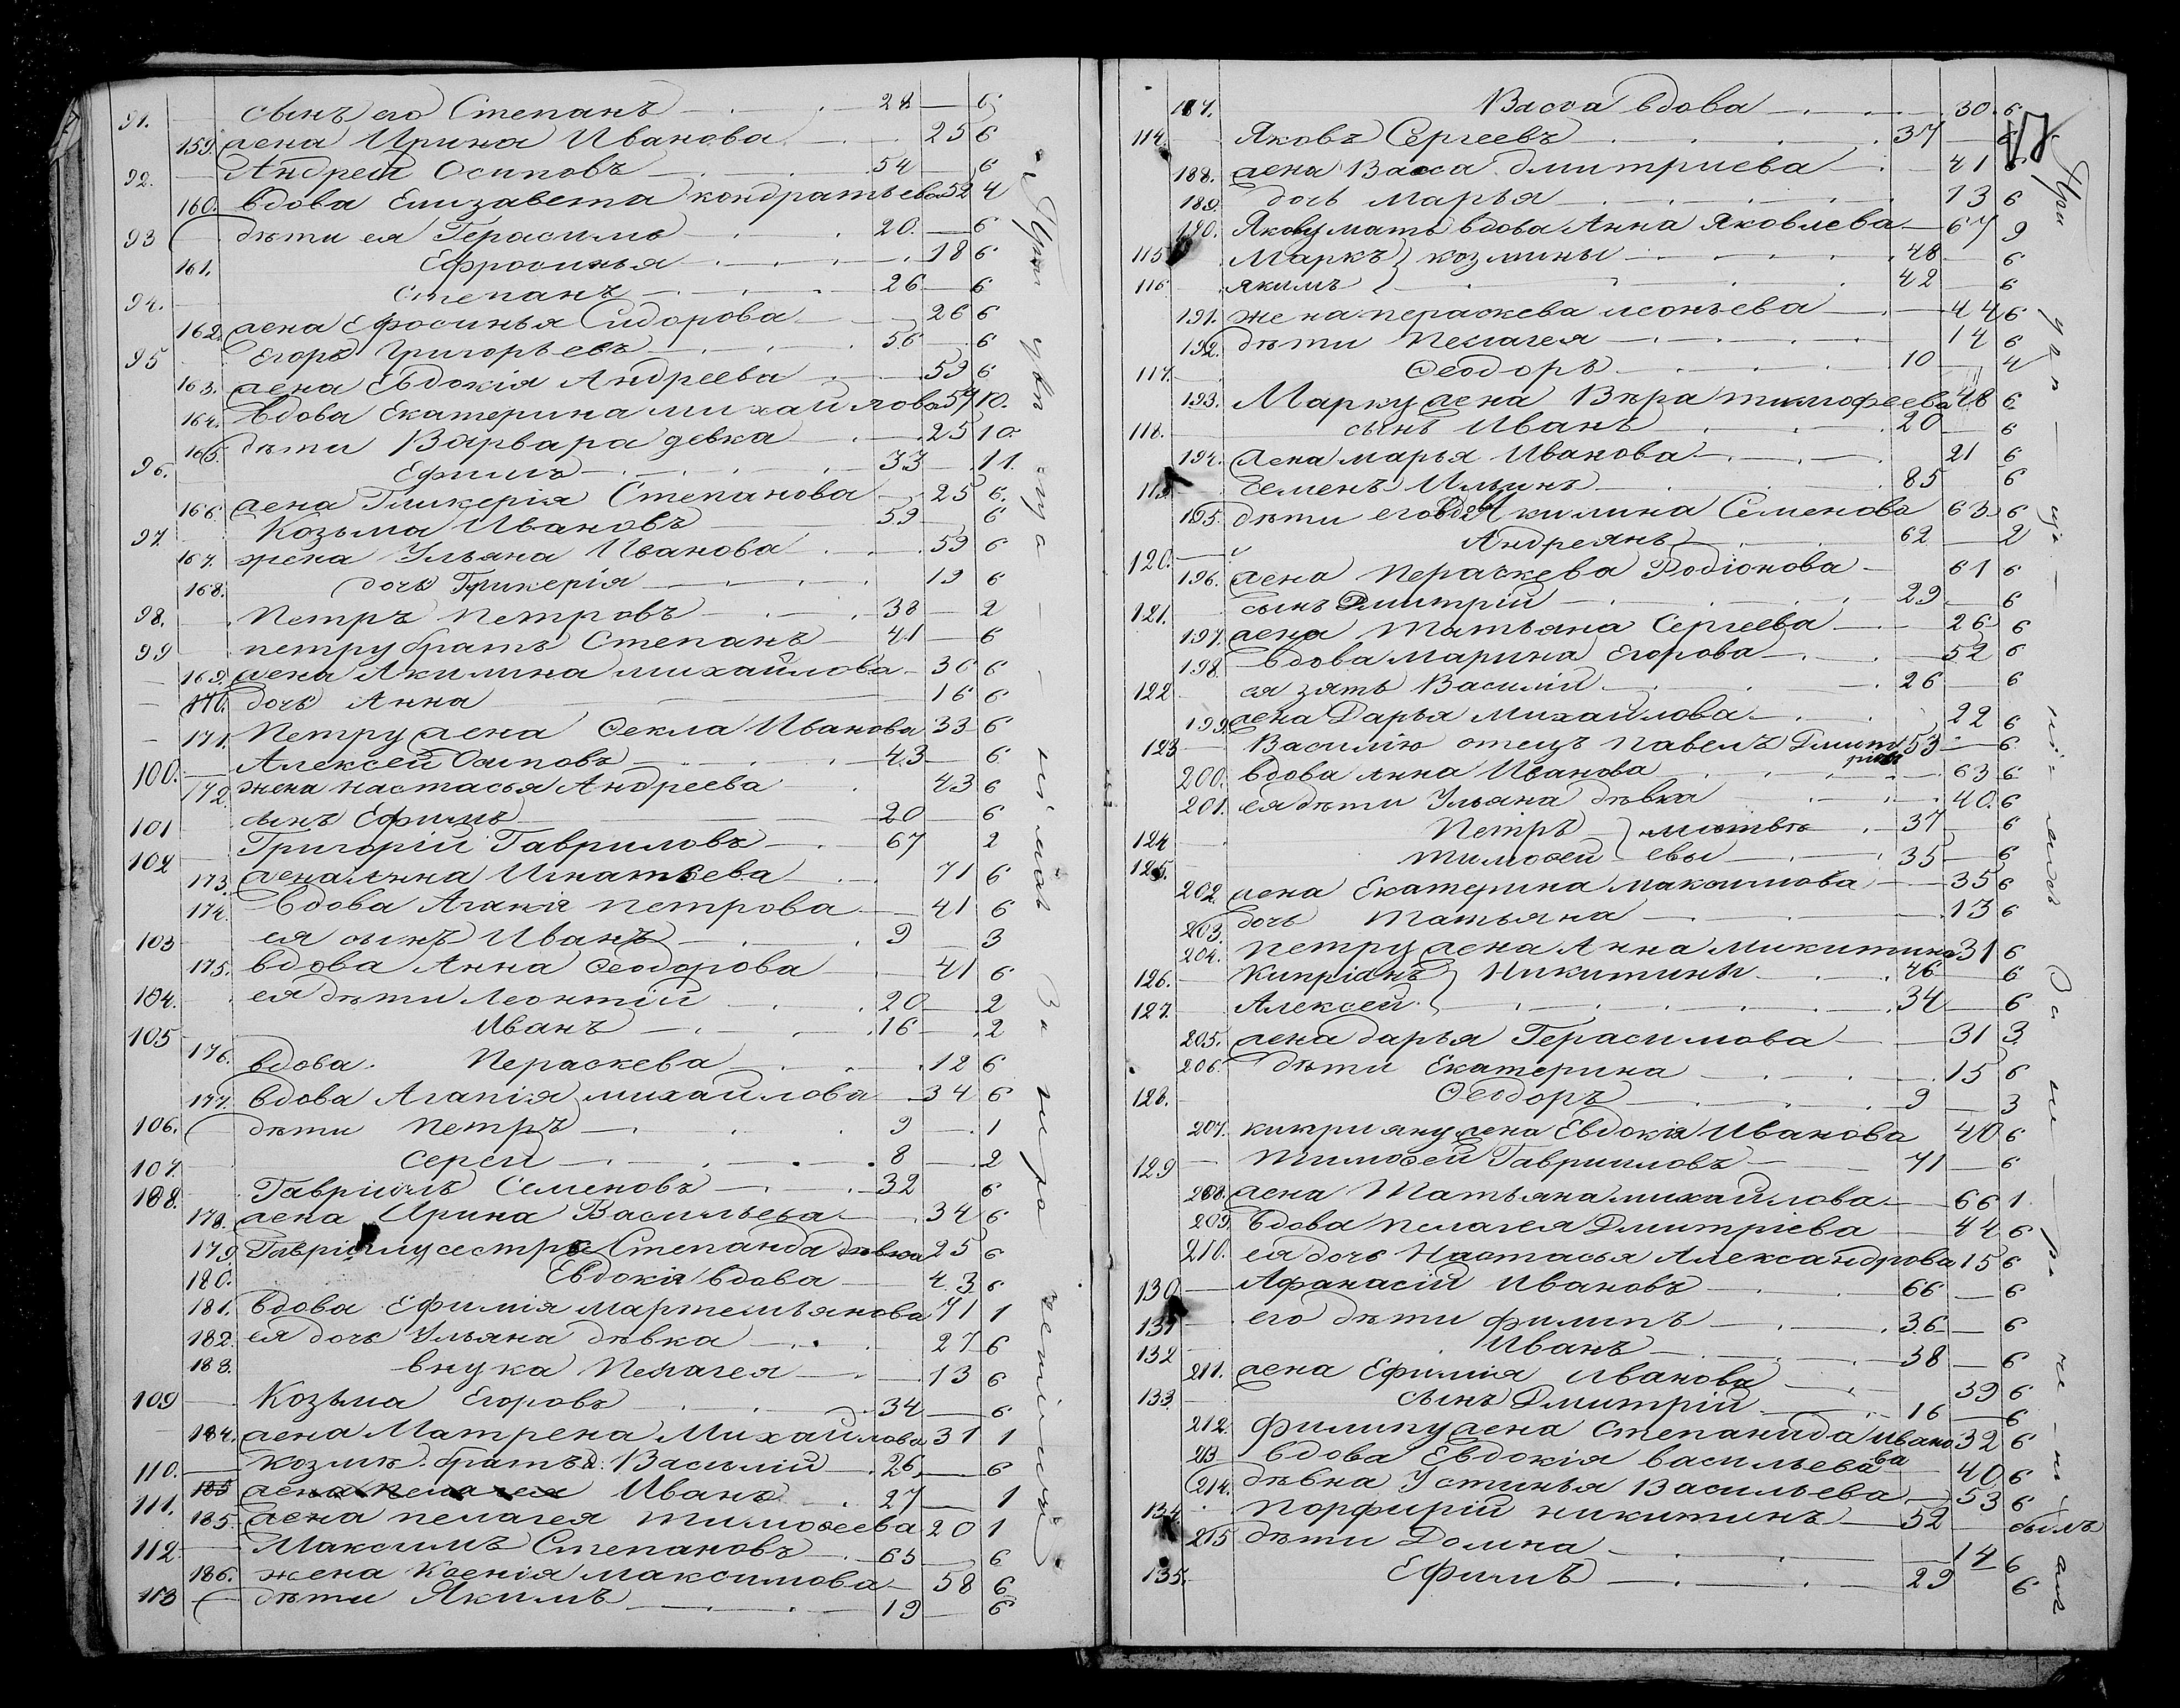 91. сынъ его Степанъ 28 6
159. жена Ирина Иванова 25 6
92. Андрей Осиповъ 54 6
160. вдова Елизавета кондратьева 52 4
93 дѣти ея Герасимъ 20 6
161. Ефросинья 18 6
94. Степанъ 26 6
162. жена Ефросинья Сидорова 26 6
95 Егоръ Григорьевъ 56 6
163. жена Евдокія Андреева 59 6
164. Вдова Екатерина михайлова 57 10.
165. дѣти Варвара девка 25 10.
96. Ефимъ 33 11.
166. жена Гликерія Степанова 25 6.
97. Козьма Ивановъ 59 6
167. жена Ульяна Иванова 59 6
168. дочь Гликерія 19 6
98. Петръ Петровъ 38 2
99 петру братъ Степанъ 41 6
169. жена Акилина михайлова 36 6
170. дочь Анна 16 6
171. Петру жена Ѳекла Иванова 33 6
100. Алексей Осиповъ 43 6
172. жена настасья Андреева 43 6
101 сынъ Ефимъ 20 6
102 Григорій Гавриловъ 67 2
173. жена Анна Игнатьева 71 6
174. Вдова Агапія петрова 41 6
103 ея сынъ Иванъ 9 3
175. вдова Анна Ѳеодорова 41 6
104. ея дѣти Леонтій 20 2
105 Иванъ 16 2
176. вдова. Пераскева 12 6
177. вдова Агапія михайлова 34 6
106. дѣти Петръ 9 1
107. Серей 8 2
108. Гавріилъ Семеновъ 32 6
178. жена Ирина Васильева 34 6
179. Гавріилу сестра Степанида дѣвка 25 6
180. Евдокія вдова 43 6
181. вдова Ефимія мартемьянова 71 1
182. ея дочь Ульяна дѣвка 27 6
183. внука Пелагея 13 6
109 Козьма Егоровъ 34 6
184. жена Матрена Михайлова 31 1
110. козмѣ братья: Василій 26 6
111. Иванъ 27 1
185. жена пелагея тимоѳеева 20 1
112 Максимъ Степановъ 65 6
186. жена Ксенія максимова 58 6
113 дѣти Якимъ 19 6
187. Васса вдова 30. 6
17
114. Яковъ Сергеевъ 37 6
188. жена Васса дмитриева 41 6
189. дочь марья 13 6
190. Якову мать вдова Анна Яковлева 67 9
115 Маркъ } козмины 48 6
116 якимъ } 42 6
191. жена пераскева леонтьева 44 6
192. дѣти Пелагея 14 6
117. Ѳеодоръ 10 4
193. Марку жена Вѣра тимофеева 48 6
118. сынъ Иванъ 20 6
194. жена марья Иванова 21 6
119. Семенъ Ильинъ 85 6
195. дѣти его вдова Акилина Семенова 63 6
120. Андреянъ 62 2
196. жена Пераскева Родіонова 61 6
121. сынъ Дмитрій 29 6
197. жена Татьяна Сергеева 26 6
198. Вдова Марина Егорова 52 6
122 ея зять Василій 26 6
199. жена Дарья михайлова 22 6
123 Василію отецъ Павелъ Дмитріевъ 53 6
200. вдова Анна Иванова 63 6
201. ея дѣти Ульяна дѣвка 40. 6
124 Петръ } матвѣ 37 6
125. тимоѳей } евы 35 6
202. жена Екатерина максимова 35 6
203. дочь Татьяна 13 6
204. петру жена Анна микитина 31 6
126. Кипріанъ } Никитины 46 6
127. Алексей } 34 6
205. жена дарья Герасимова 31 3
206. дѣти Екатерина 15 6
128. Ѳеодоръ 9 3
207. киприяну жена Евдокія Иванова 40 6
129 тимоѳей Гаврииловъ 71 6
208. жена Татьяна михайлова 66 1
209. Вдова пелагея Дмитріева 44 6
210. ея дочь Настасья Александрова 15 6
130 Афанасій Ивановъ 66 6
131 его дѣти филипъ 36 6
132 Иванъ 38 6
211. жена Ефимія Иванова 39 6
133. сынъ Дмитрій 16 6
212. филипу жена степанида Иванова 32 6
213 Вдова Евдокія васильева 40 6
214. дѣвка Устинья Васильева 53 6
134. порфирій никитинъ 52 былъ
215 дѣти Домна 14 6
135. Ефимъ 29 6